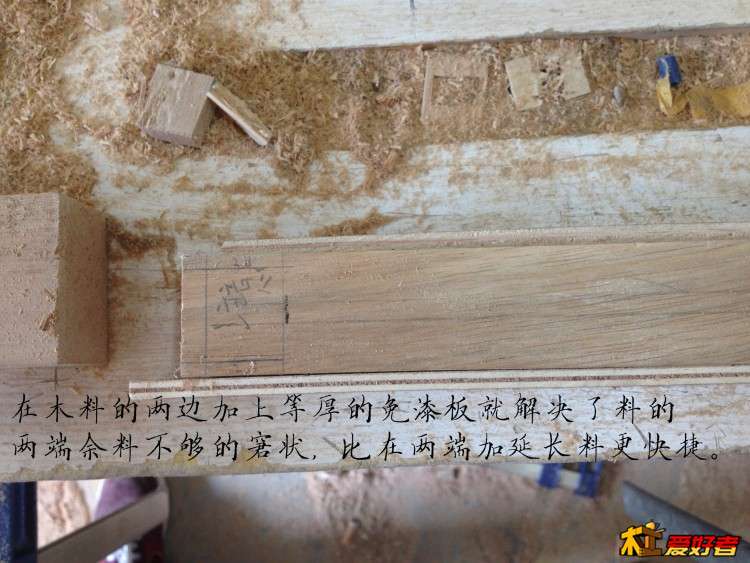 在木料的两边加上等厚的免漆板就解决了料的
两端余料不够的窘状，比在两端加延长料更快捷。
木工爱好者